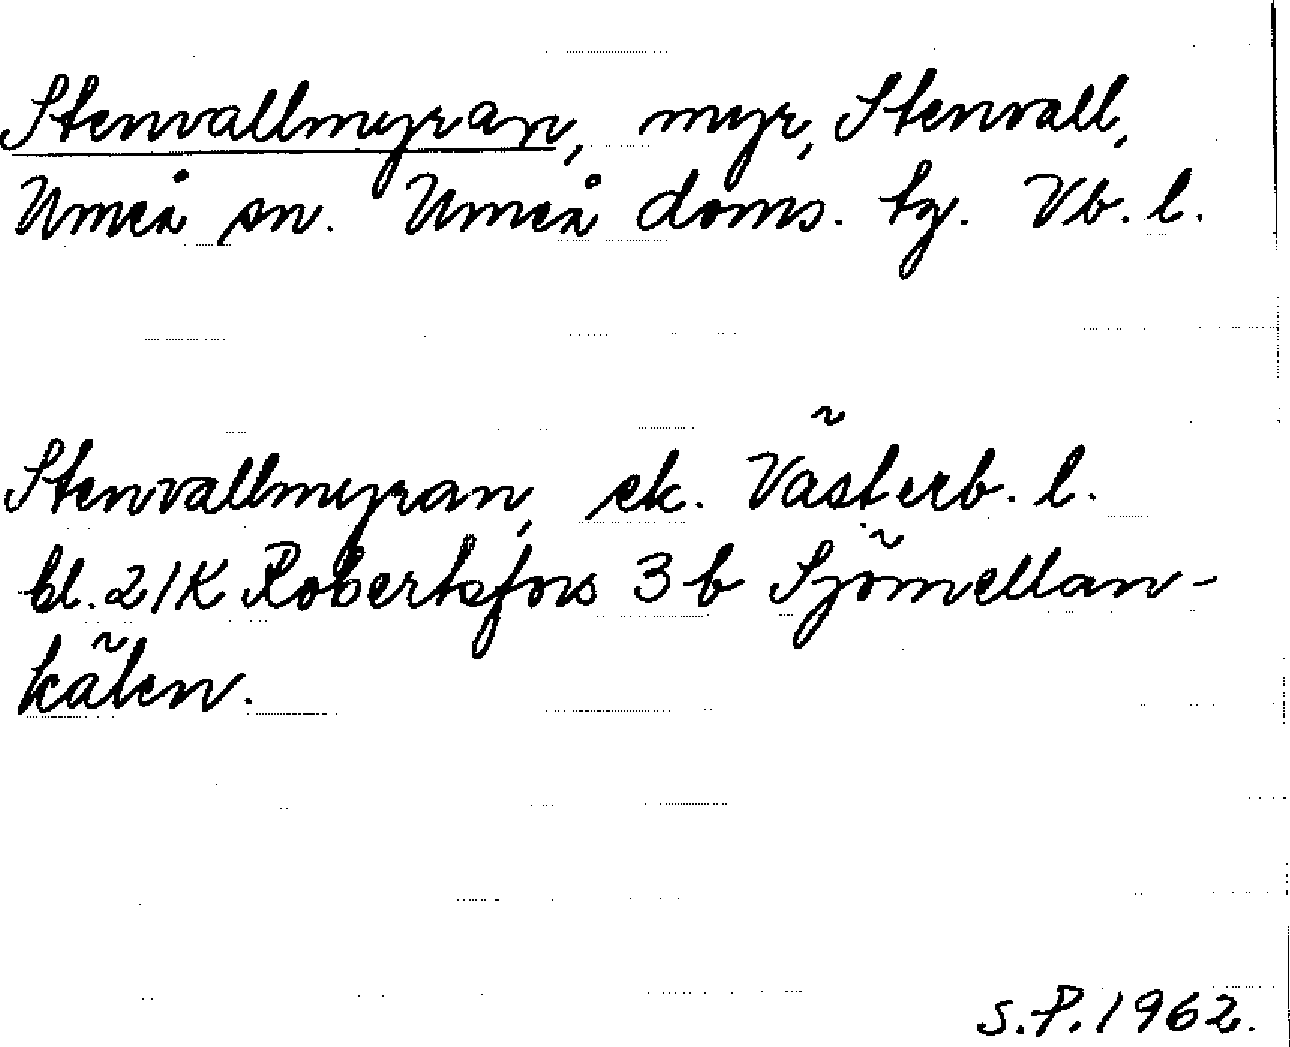 Stenvallmyran, myr, Stenvall,
Umeå sn. Umeå doms. tg. Vb. l.
Stenvallmyran, ek. Västerb. l.
bl. 21K Robertsfors 3b Sjömellan-
kälen.
S.P. 1962.